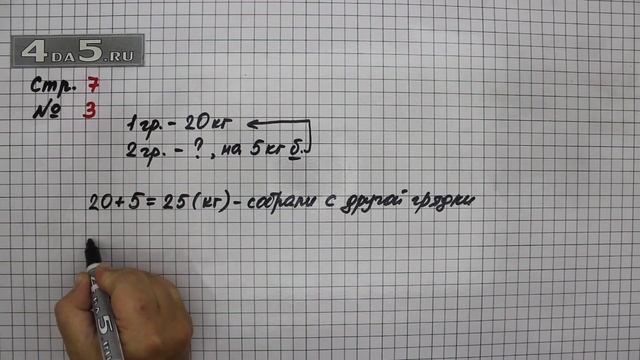 4DA5.RU
Стр. 7
№ 3
1 гр. - 20 кг
2 гр. - ?, на 5 кг б.
20 + 5 = 25 (кг) - собрали с другой грядки
4DA5